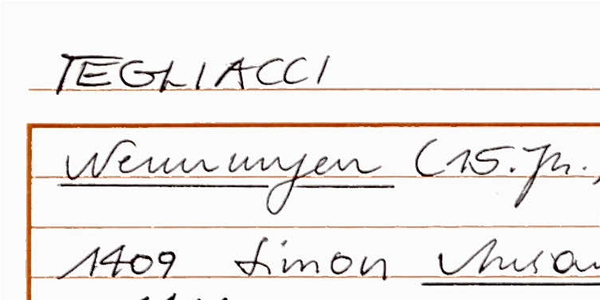 TEGLIACCI
Nennungen (15. Jh.,
1409 Simon